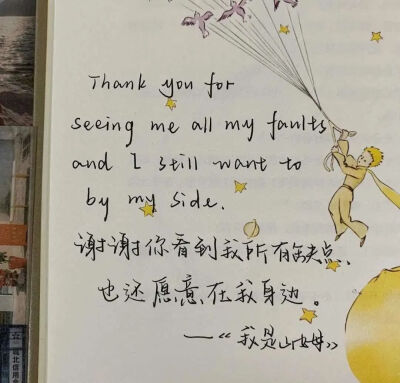 Thank you for
seeing me all my faults
and I still want to
by my side.
谢谢你看到我所有缺点、
也还愿意在我身边。
——《我是山姆》